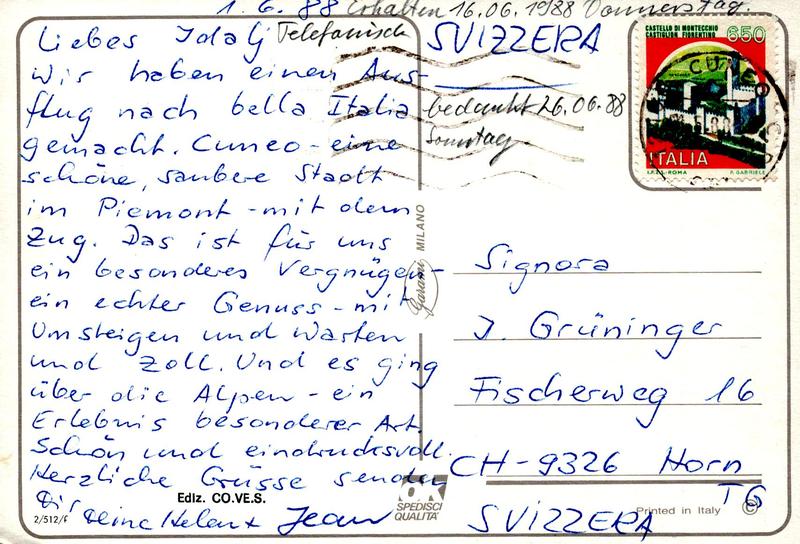 1.6.88 Erhalten 16.06.1988 Donnerstag.
Liebes Idalj
Telefonisch
Wir haben einen Aus-
flug nach bella Italia
gemacht. Cuneo - eine
schöne, saubere Stadt
im Piemont - mit dem
Zug. Das ist für uns
ein besonderes Vergnügen -
ein echter Genuss - mit
Umsteigen und warten
und Zoll. Und es ging
über die Alpen - ein
Erlebnis besonderer Art.
Schön und eindrucksvoll.
Herzliche Grüsse senden
Dir
Deine Helen + Jean
SVIZZERA
bedankt 26.06.88
Sonntag
CASTELLO DI MONTECCHIO
CASTIGLION FIORENTINO
650
ITALIA
I.P.Z.S.-ROMA
P. GABRIELE
CUNEO
Garami MILANO
Signora
J. Grüninger
Fischerweg 16
CH-9326 Horn
TG
SVIZZERA
Ediz. CO.VE.S.
2/512/F
OK
SPEDISCI
QUALITA'
Printed in Italy ©